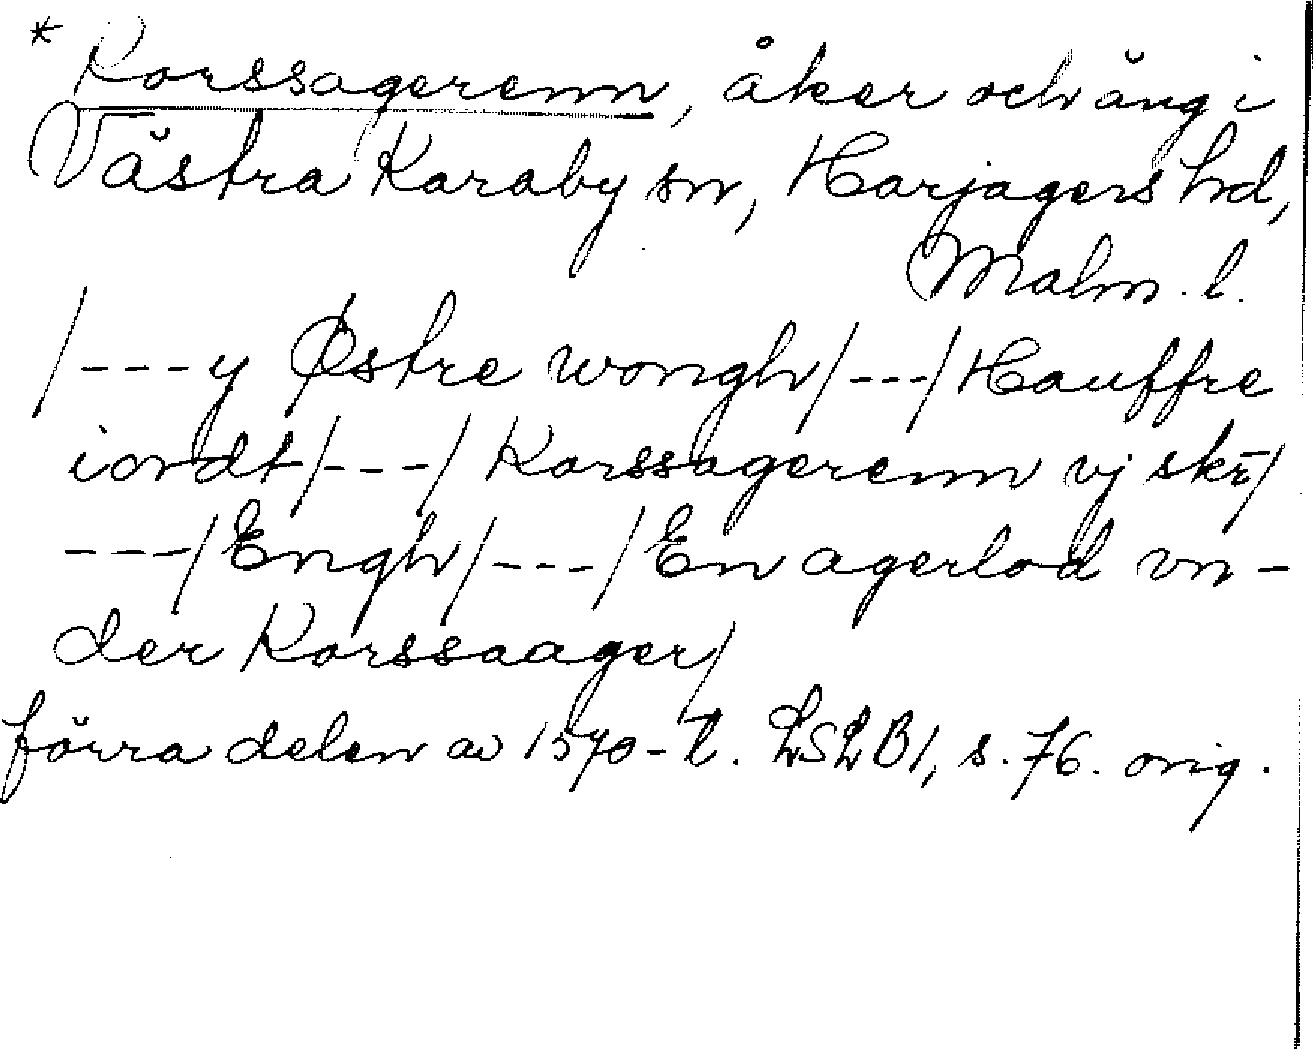 * Korssagerenn, åker och äng i
Västra Karaby sn, Harjagers hd,
Malm. l.
/---y Østre wongh/---/Hauffre
iordt/---/Korssagerenn vj skr̄/
---/Engh/---/En agerlod vn-
der Korssaager/
förra delen av 1570-t. LSLB1, s. 76. orig.